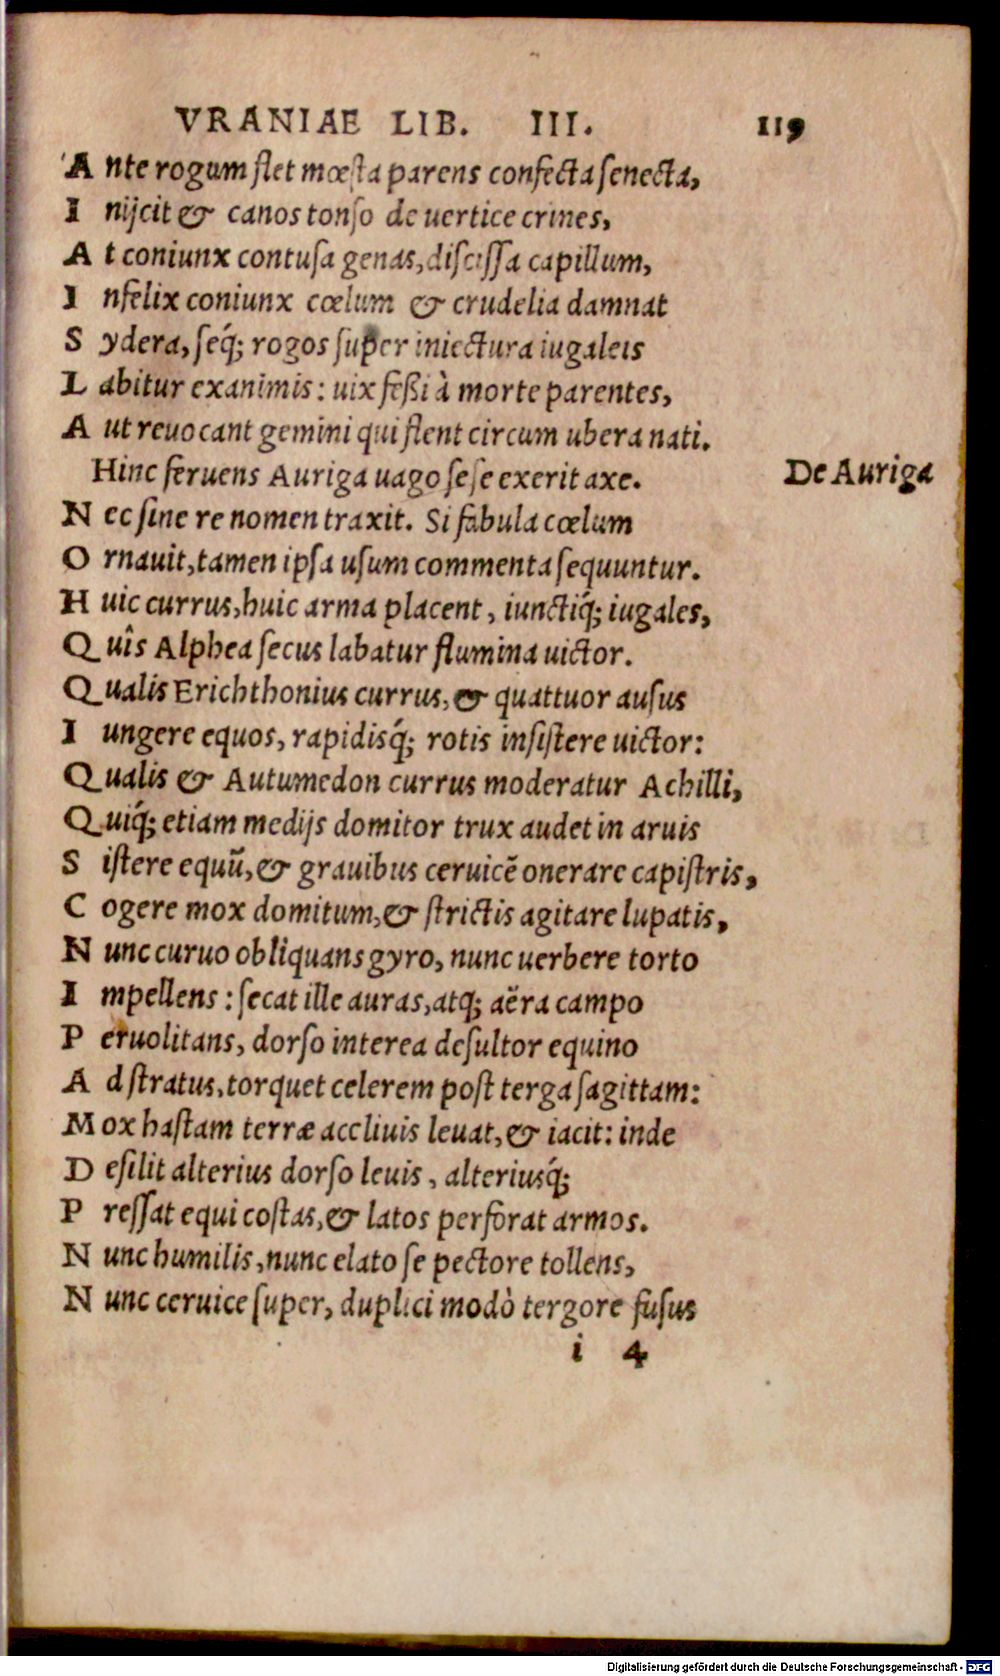 VRANIAE LIB. III. 119
Ante rogum flet mœsta parens confecta senecta,
Inijcit & canos tonso de uertice crines,
At coniunx contusa genas, discissa capillum,
Infelix coniunx cœlum & crudelia damnat
Sydera, seq́; rogos super iniectura iugaleis
Labitur exanimis: uix feßi à morte parentes,
Aut reuocant gemini qui flent circum ubera nati.
Hinc feruens Auriga uago sese exerit axe.
De Auriga
Nec sine re nomen traxit. Si fabula cœlum
Ornauit, tamen ipsa usum commenta sequuntur.
Huic currus, huic arma placent, iunctiq́; iugales,
Quîs Alphea secus labatur flumina uictor.
Qualis Erichthonius currus, & quattuor ausus
Iungere equos, rapidisq́; rotis insistere uictor:
Qualis & Autumedon currus moderatur Achilli,
Quiq́; etiam medijs domitor trux audet in aruis
Sistere equũ, & grauibus ceruicẽ onerare capistris,
Cogere mox domitum, & strictis agitare lupatis,
Nunc curuo obliquans gyro, nunc uerbere torto
Impellens: secat ille auras, atq; aëra campo
Peruolitans, dorso interea desultor equino
Adstratus, torquet celerem post terga sagittam:
Mox hastam terræ accliuis leuat, & iacit: inde
Desilit alterius dorso leuis, alteriusq́;
Pressat equi costas, & latos perforat armos.
Nunc humilis, nunc elato se pectore tollens,
Nunc ceruice super, duplici modò tergore fusus
i 4
Digitalisierung gefördert durch die Deutsche Forschungsgemeinschaft - DFG